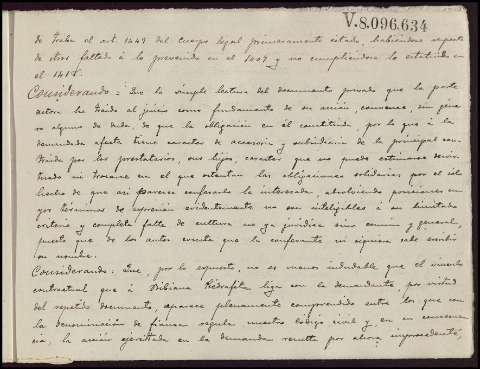 V.8.096.634
de Traba el art. 1449 del Cuerpo legal primeramente citado, habiéndose respecto
de otros faltado á lo prevenido en el 1407 y no cumpliéndose lo estatuido en
el 1417.
Considerando: Que la simple lectura del documento privado que la parte
actora ha traido al juicio como fundamento de su acción, convence, sin géne
ro alguno de duda, de que la obligación en él constituida, por lo que á la
demandada afecta tiene caracter de accesoria y subsidiaria de la principal con-
traida por los prestatarios, sus hijos, caracter que no puede estimarse desvir-
tuado ni trocarse en el que ostentan las obligaciones solidarias por el só
lo hecho de que así parece confesarlo la interesada, absolviendo posiciones cu-
yos términos de expresión evidentemente no son inteligibles á su limitado
criterio y completa falta de cultura no ya jurídica sino comun y general,
puesto que de los autos consta que la confesante ni siquiera sabe escribir
su nombre.
Considerando: Que, por lo expuesto, no es menos indudable que el vínculo
contractual que á Bibiana Piedrafita liga con la demandante, por virtud
del repetido documento, aparece plenamente comprendido entre los que con
la denominación de fianza regula nuestro Código civil y, en su consecuen
cia, la acción ejercitada en la demanda resulta por ahora improcedente,